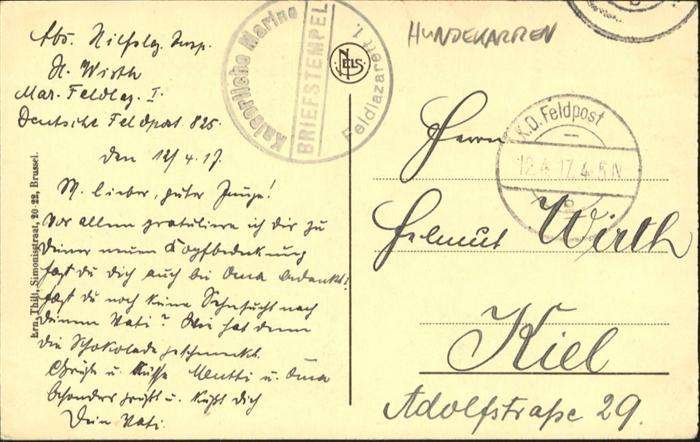 Abs. Hilfslaz. Insp.
H. Wirth
Mar. Feldlaz. I.
Deutsche Feldpost 825
den 12/4.17.
M. lieber, guter Junge!
Vor allem gratuliere ich dir zu
deiner neuen Kopfbedeckung
hast du dich auch bei Oma bedankt?
Hast du noch keine Sehnsucht nach
deinem Vati? Wie hat denn
die Schokolade geschmeckt.
Grüße u. Küsse Mutti u. Oma
besonders grüßt u. küßt dich
Dein Vati.
Ern. Thill, Simonisstraat, 20-22, Brussel.
Kaiserliche Marine
BRIEFSTEMPEL
Feldlazarett 1.
NELS
HUNDEKARREN
K.D. Feldpost
12.4.17. 4-5 N
Herrn
Helmut Wirth
Kiel
Adolfstraße 29.